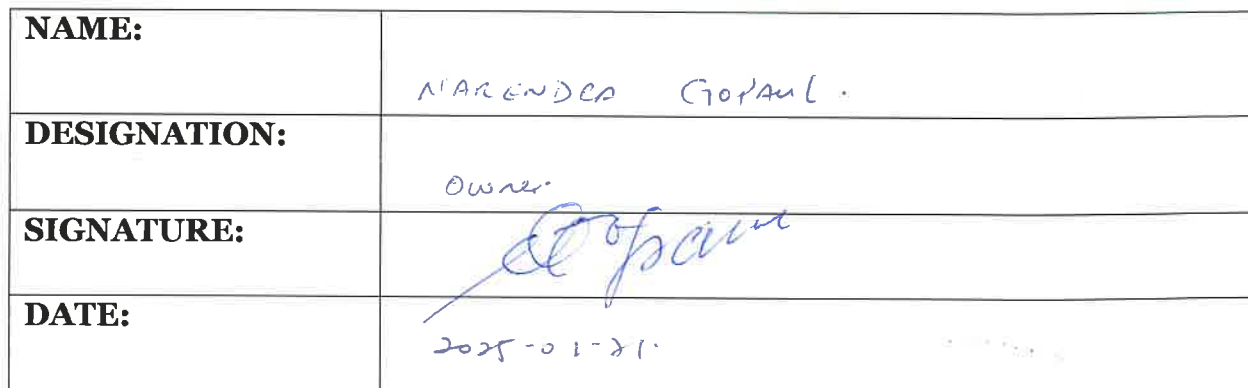 NAME:
NARENDRA GOPAUL.
DESIGNATION:
Owner
SIGNATURE:
Gopaul
DATE:
2025-01-21.